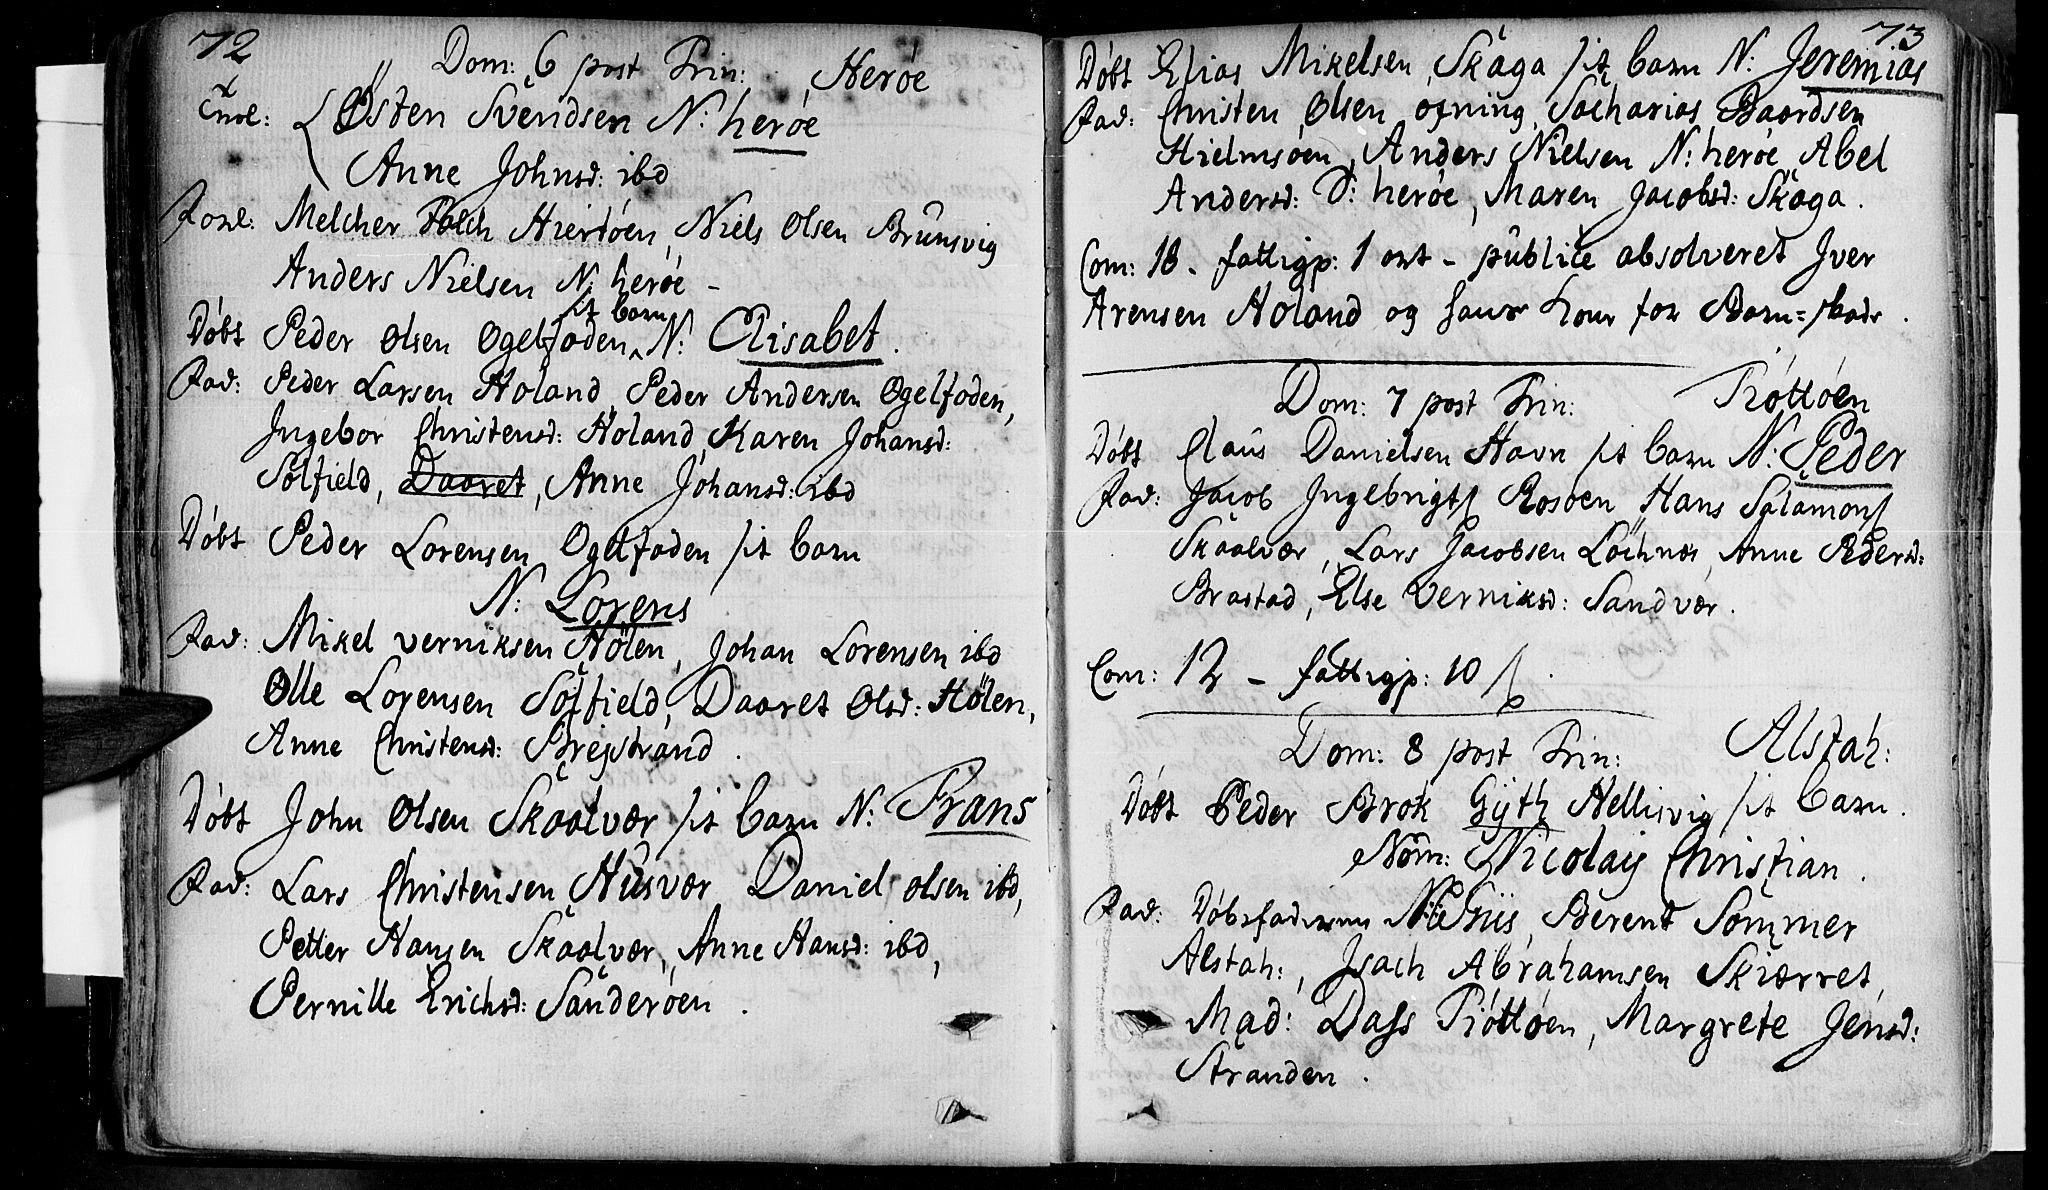 72
Dom: 6 post Trin: Herøe
Østen Svendsen N: herøe
Anne Johnsd: ibd
Forl: Melcher Falch Hiertøen, Niels Olsen Brunsvig
Anders Nielsen N: herøe -
sit barn
Døbt Peder Olsen Ogelfoden N: Elisabet.
Fad: Peder Larsen Holand, Peder Andersen Ogelfoden,
Ingebor Christensd: Holand, Karen Johansd:
Sølfield, Daaret, Anne Johansd: ibd
Døbt Peder Lorensen Ogelfoden sit barn
N: Lorens
Fad: Mikel Verniksen Hølen, Johan Lorensen ibd
Olle Lorensen Sølfield, Daaret Olsd: Hølen,
Anne Christensd: Brejstrand.
Døbt John Olsen Skaalvær sit barn N: Frans
Fad: Lars Christensen Husvær Daniel Olsen ibd,
Petter Hansen Skaalvær, Anne Hansd: ibd,
Pernille Erichsd: Sanderøen.
73
Døbt Elias Mikelsen, Skaga sit barn N: Jeremias
Fad: Christen Olsen øxning, Sacharias Baardsen
Hielmsøen, Anders Nielsen N: herøe, Abel
Andersd: S: herøe, Maren Jacobsd: Skaga.
Com: 18 - fattigp: 1 ort - publice absolveret Iver
Arensen Holand og hans Kone for
Dom: 7 post Trin: Tiøttøen
Døbt Claus Danielsen Havn sit barn N: Peder
Fad: Jacob Ingebrigts Rosøen Hans Salamons
Skaalvær, Lars Jacobsen Løchnæs, Anne Pedersd:
Brastad, Else Verniksd: Sandvær.
Com: 12 - fattigp: 10 s.
Dom: 8 post Trin: Alstah:
Døbt Peder Brok Gyth Hellisvig sit barn.
Nom: Nicolay Christian.
Fad: Berent Sommer
Alstah:, Isach Abrahamsen Skiærret,
Mad: Dass Tiøttøen, Margrete Jensd:
Stranden.